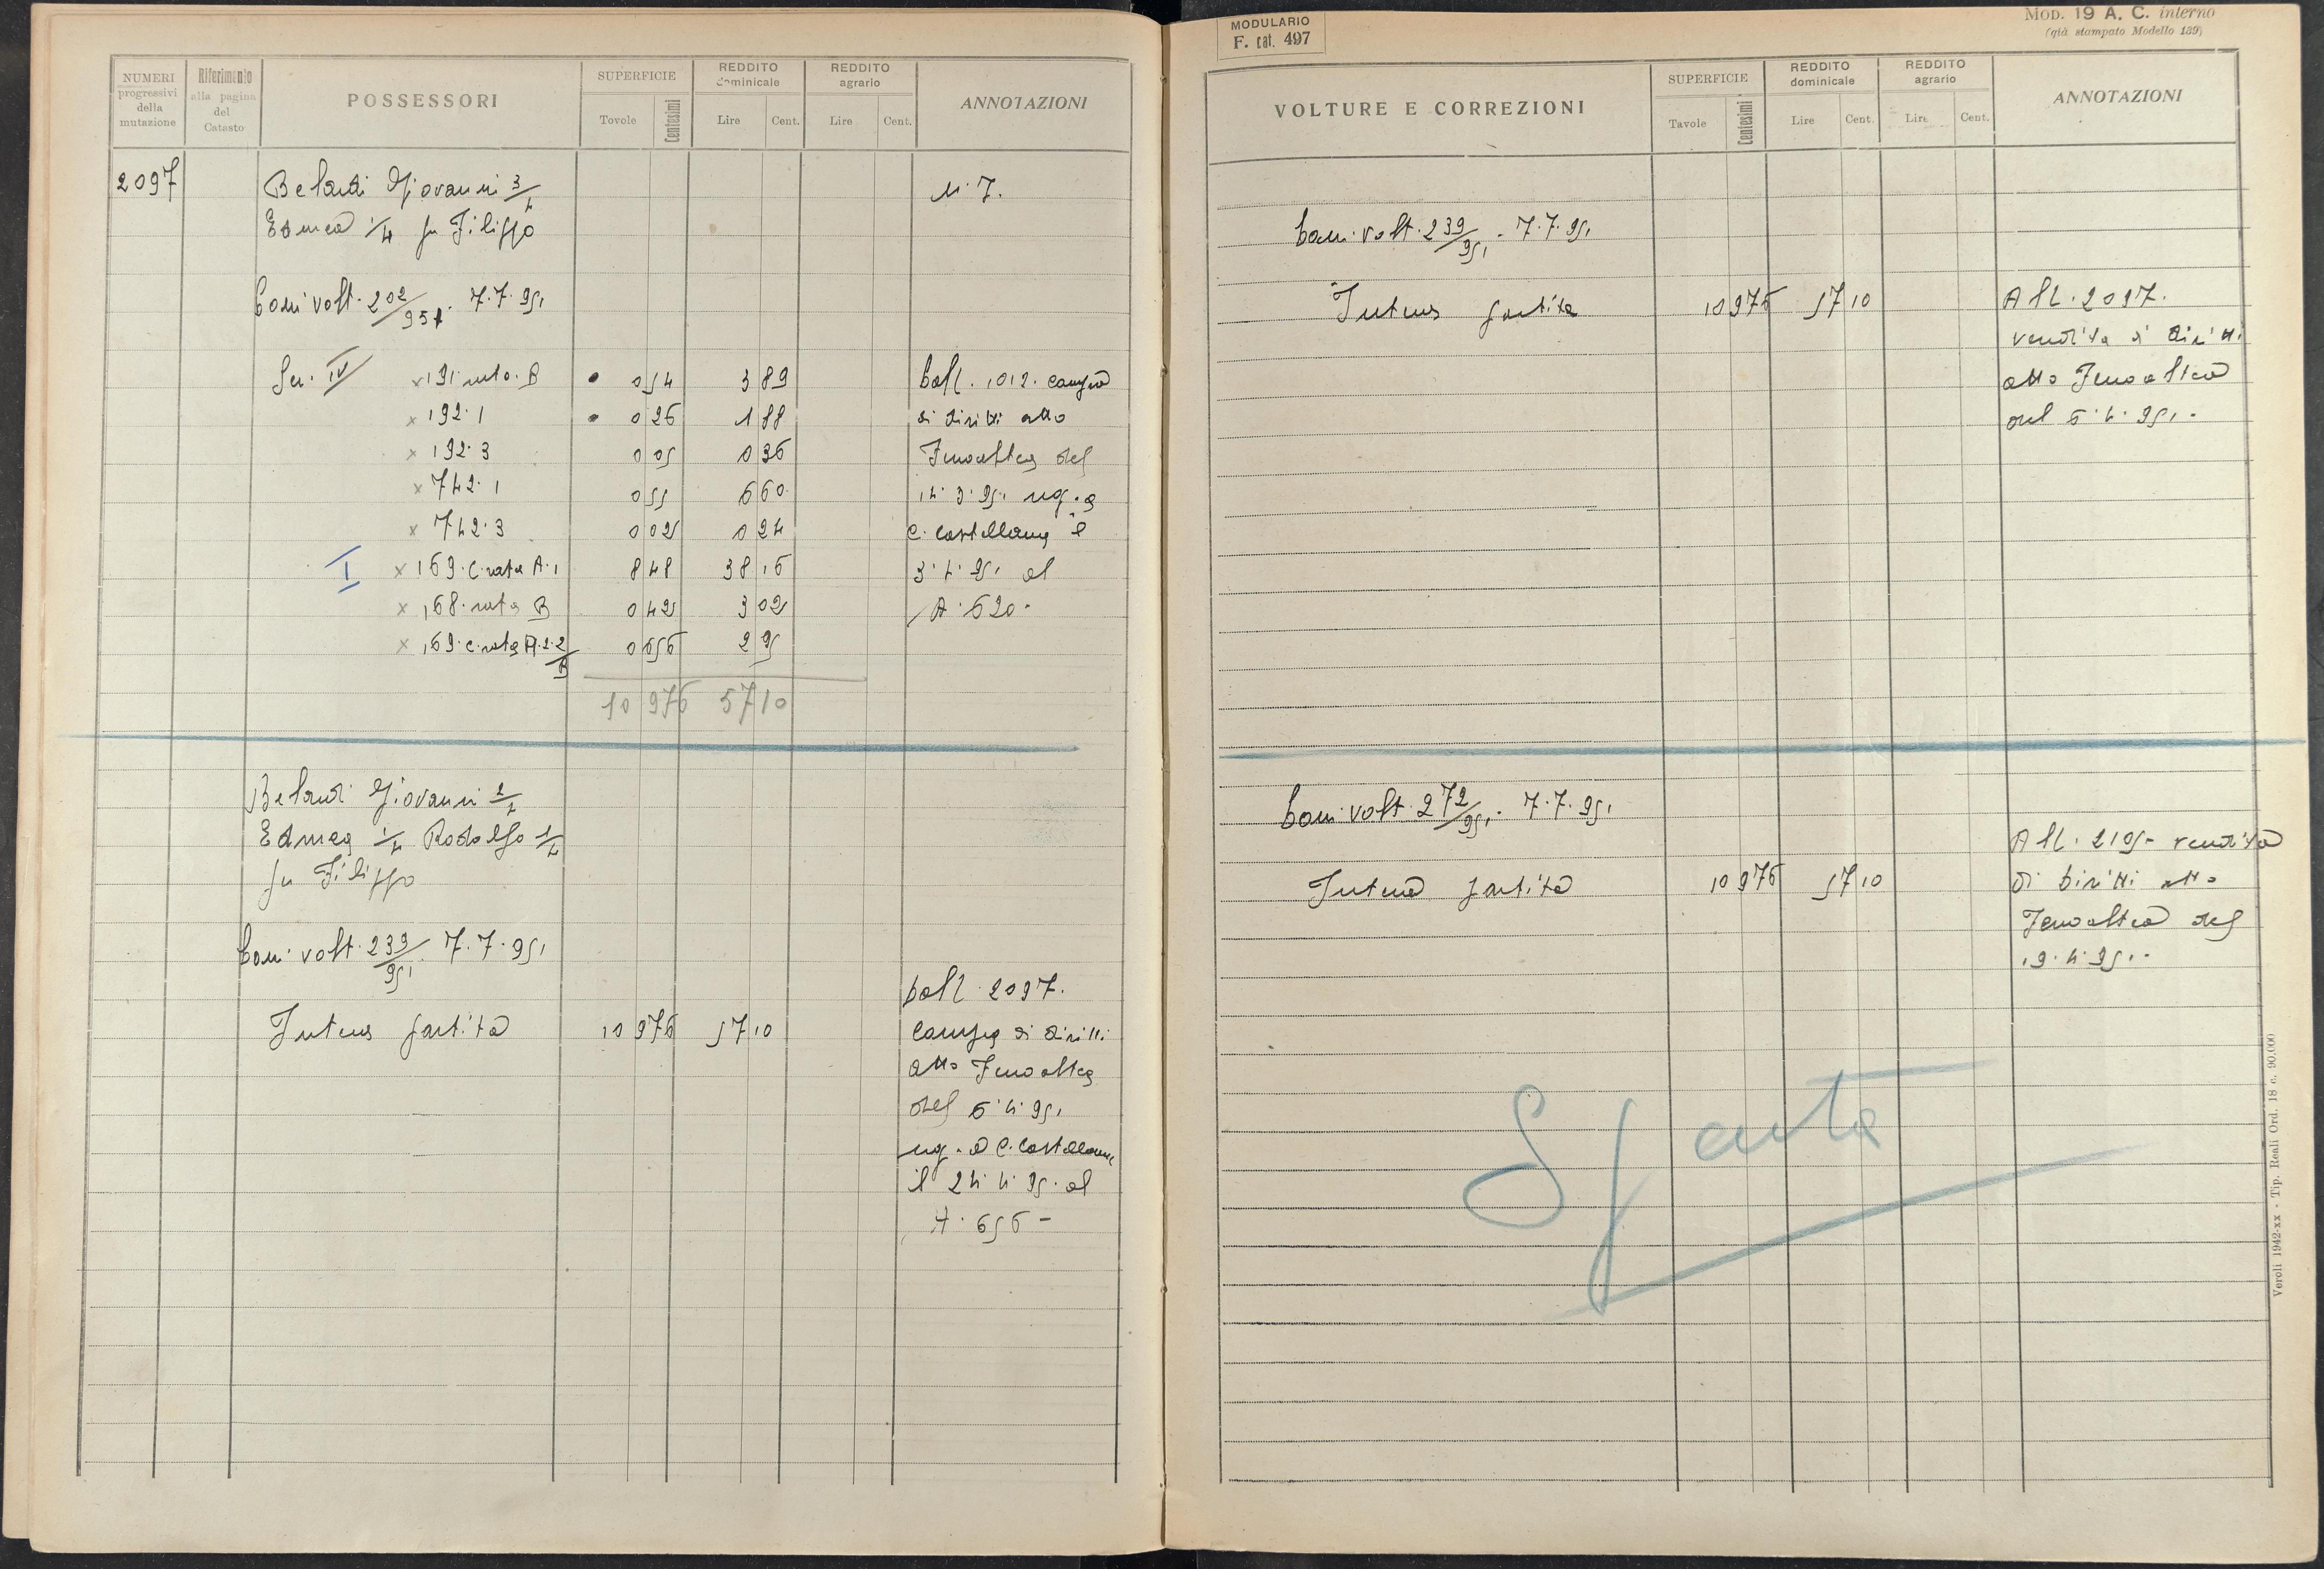 NUMERI progressivi della mutazione
Riferimento alla pagina del Catasto
POSSESSORI
SUPERFICIE
Tovole
Centesimi
REDDITO dominicale
Lire Cent.
REDDITO agrario
Lire Cent.
ANNOTAZIONI
2097
Belardi Giovanni 3/4
N. 7.
Edmea 1/4 fu Filippo
Com. volt. 202/951. 7.7.951
Sez. IV x 191 rata B 0 54 3 89
x 192.1 0 26 1 88
x 192.3 0 05 0 36
x 742.1 0 55 6 60
x 742.3 0 02 0 24
I x 169.C rata A.1 8 48 38 16
x 168. rata B 0 42 3 02
x 169.C rata A.2.2/B 0 656 2 95
10 976 57 10
Dall. 1012. compra
di diritti atto
Fenoaltea del
14.3.951 reg. a
C. Castellana il
3.4.951 al
N. 620.
Belardi Giovanni 2/4
Edmea 1/4 Rodolfo 1/4
fu Filippo
Com. volt. 239/951. 7.7.951
Intera partita 10 976 57 10
Dall. 2097.
Compra di diritti
atto Fenoaltea
del 6.4.951
reg. a C. Castellana
il 24.4.951 al
N. 656 -
MODULARIO
F. cat. 497
MOD. 19 A. C. interno
(già stampato Modello 139)
VOLTURE E CORREZIONI
SUPERFICIE
Tavole
Centesimi
REDDITO dominicale
Lire Cent.
REDDITO agrario
Lire Cent.
ANNOTAZIONI
Com. volt. 239/951. - 7.7.951
Intera partita 10 976 57 10
All. 2097.
vendita di diritti
atto Fenoaltea
del 6.4.951. -
Com. volt. 272/951. - 7.7.951
Intera partita 10 976 57 10
All. 2105 - vendita
di diritti atto
Fenoaltea del
19.4.951. -
Spenta
Veroli 1942-XX - Tip. Reali Ord. 18 c. 90.000